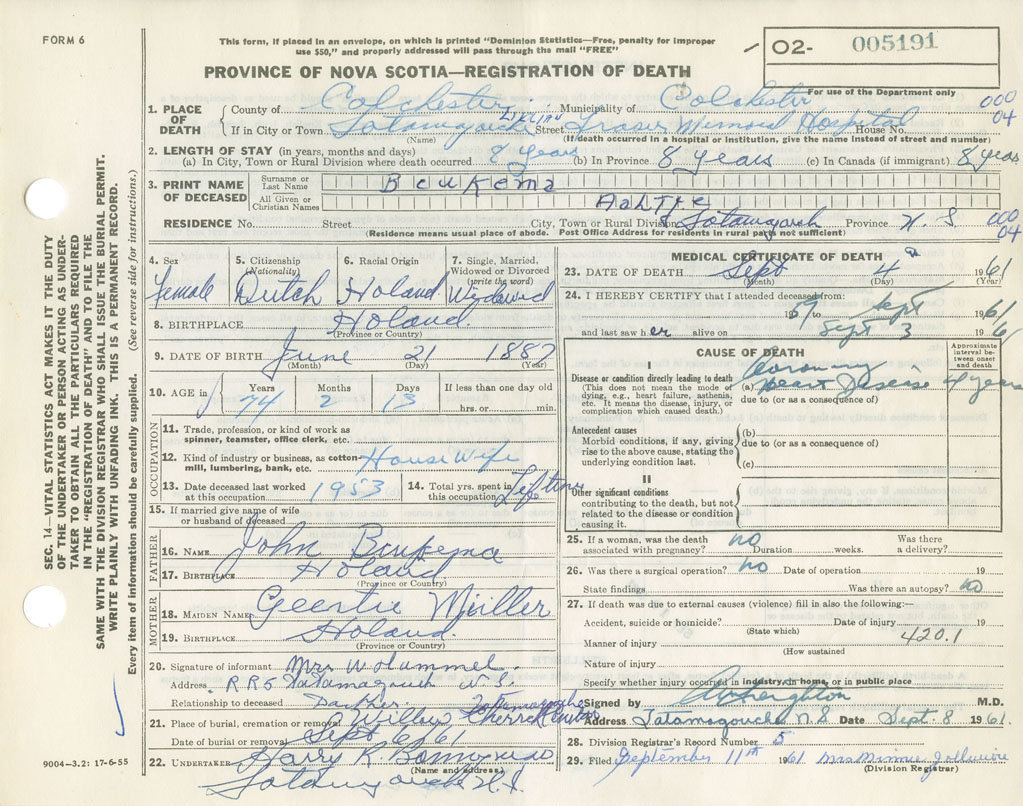 FORM 6
This form, if placed in an envelope, on which is printed "Dominion Statistics—Free, penalty for improper
use $50," and properly addressed will pass through the mail "FREE"
PROVINCE OF NOVA SCOTIA—REGISTRATION OF DEATH
02- 005191
For use of the Department only
1. PLACE OF DEATH
County of Colchester Municipality of Colchester
000
04
If in City or Town Tatamagouche Street Fraser Hospital House No.
(Name) (If death occurred in a hospital or institution, give the name instead of street and number)
2. LENGTH OF STAY (in years, months and days)
(a) In City, Town or Rural Division where death occurred 8 years (b) In Province 8 years (c) In Canada (if immigrant) 8 years
3. PRINT NAME OF DECEASED
Surname or Last Name Beukema
All Given or Christian Names
RESIDENCE No. Street City, Town or Rural Division Province N. S
000
04
(Residence means usual place of abode. Post Office Address for residents in rural parts not sufficient)
4. Sex 5. Citizenship (Nationality) 6. Racial Origin 7. Single, Married, Widowed or Divorced (write the word)
Female Dutch Holand
8. BIRTHPLACE Holand.
(Province or Country)
9. DATE OF BIRTH June 21 1887
(Month) (Day) (Year)
10. AGE in Years Months Days If less than one day old
74 2 13 hrs. or min.
OCCUPATION
11. Trade, profession, or kind of work as
spinner, teamster, office clerk, etc.
12. Kind of industry or business, as cotton-
mill, lumbering, bank, etc. House Wife
13. Date deceased last worked
at this occupation 1953
14. Total yrs. spent in
this occupation Lifetime
15. If married give name of wife
or husband of deceased
FATHER
16. NAME John Beukema
17. BIRTHPLACE Holand
(Province or Country)
MOTHER
18. MAIDEN NAME Geertie Müller
19. BIRTHPLACE Holand.
(Province or Country)
20. Signature of informant Mrs W
Address RR5 Tatamagouch N.S.
Relationship to deceased
21. Place of burial, cremation or removal
Date of burial or removal Sept 6/61
22. UNDERTAKER Harry K.
(Name and address)
MEDICAL CERTIFICATE OF DEATH
23. DATE OF DEATH Sept 4 1961
(Month) (Day) (Year)
24. I HEREBY CERTIFY that I attended deceased from:
59 to Sept 1961
and last saw her alive on Sept 3 196
CAUSE OF DEATH
Approximate interval between onset and death
I
Disease or condition directly leading to death
(This does not mean the mode of
dying, e.g., heart failure, asthenia,
etc. It means the disease, injury, or
complication which caused death.)
(a) Coronary
Heart Disease 4 years
due to (or as a consequence of)
Antecedent causes
Morbid conditions, if any, giving
rise to the above cause, stating the
underlying condition last.
(b)
due to (or as a consequence of)
(c)
II
Other significant conditions
contributing to the death, but not
related to the disease or condition
causing it.
25. If a woman, was the death no Was there
associated with pregnancy? Duration weeks. a delivery?
26. Was there a surgical operation? no Date of operation 19
State findings Was there an autopsy? no
27. If death was due to external causes (violence) fill in also the following:—
Accident, suicide or homicide? Date of injury 19
(State which)
420.1
Manner of injury
(How sustained
Nature of injury
Specify whether injury occurred in industry, in home, or in public place
Signed by Creighton M.D.
Address Tatamagouche N.S Date Sept. 8 1961.
28. Division Registrar's Record Number 5
29. Filed September 11th 1961 Mrs Minnie
(Division Registrar)
SEC. 14—VITAL STATISTICS ACT MAKES IT THE DUTY
OF THE UNDERTAKER OR PERSON ACTING AS UNDER-
TAKER TO OBTAIN ALL THE PARTICULARS REQUIRED
IN THE "REGISTRATION OF DEATH" AND TO FILE THE
SAME WITH THE DIVISION REGISTRAR WHO SHALL ISSUE THE BURIAL PERMIT.
WRITE PLAINLY WITH UNFADING INK. THIS IS A PERMANENT RECORD.
Every item of information should be carefully supplied. (See reverse side for instructions.)
9004-3.2: 17-6-55